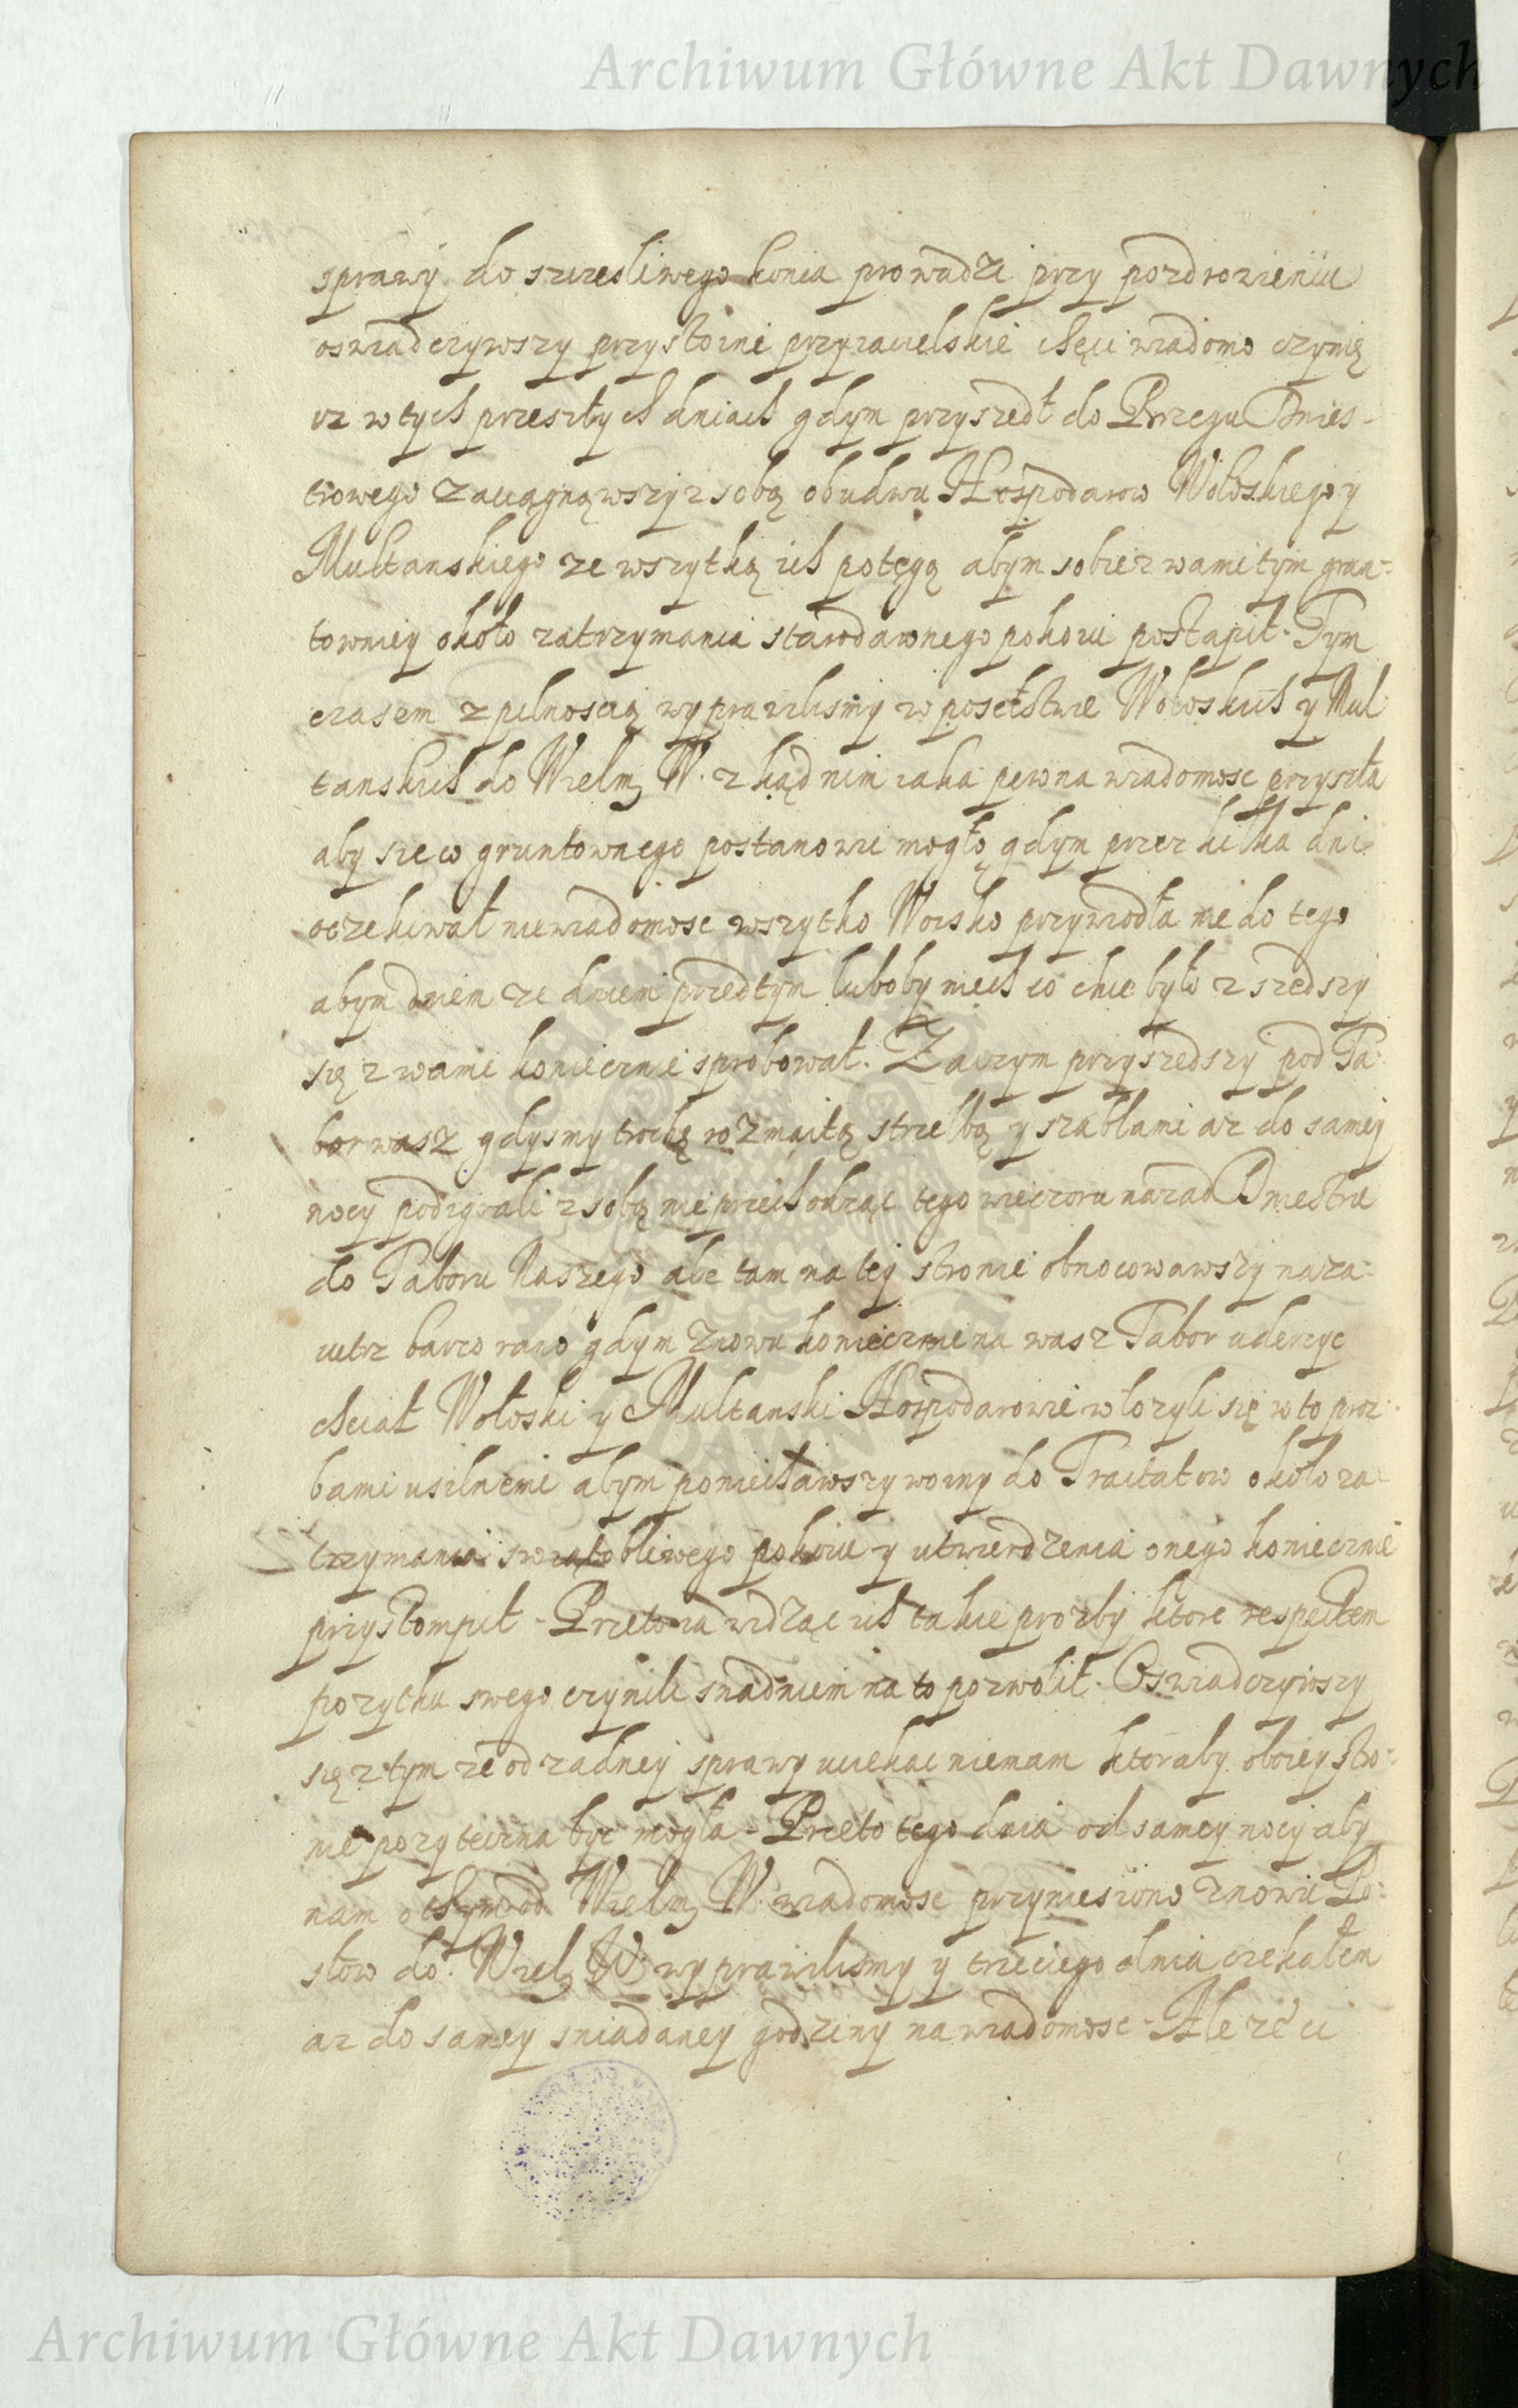 Archiwum Główne Akt Dawnych
sprawy do szczesliwego konca prowadzi przy pozdrowieniu
oswiadczywszy przystoine przyiacielskie chęci wiadomo czynię
iz w tych przeszłych dniach gdym przyszedł do Brzegu Dnies-
trowego zaciągnąwszy z sobą obudwu Hospodarow Wołoskiego y
Multanskiego ze wszytką ich potęgą abym sobie z wami tym grun-
towniey około zatrzymania starodawnego pokoiu postąpił. Tym
czasem z pilnoscią wyprawilismy w poselstwie Wołoskich y Mul-
tanskich do Wielm W. z kąd nim iaka pewna wiadomosc przyszła
aby sie co gruntownego postanowic mogło gdym przez kilka dni
oczekiwał niewiadomosc wszytko Woisko przywiodła mie do tego
abym dniem ze dniem przedtym luboby niech co chce było zszedszy
się z wami koniecznie sprobował. Zaczym przyszedszy pod Ta-
bor wasz gdysmy trochę rozmaitą strzelbą y szablami az do samey
nocy podigrali z sobą nie przechodząc tego wieczora nazad Dniestru
do Taboru Naszego ale tam na tey stronie obnocowawszy naza-
iutrz barzo rano gdym znowu koniecznie na wasz Tabor uderzyc
chciał Wołoski y Multanski Hospodarowie włozyli się w to proz-
bami usilnemi abym poniechawszy woiny do Tractatow około za-
trzymania swiątobliwego pokoiu y utwierdzenia onego koniecznie
przystompił - Przeto ia widząc ich takie prozby ktore respectem
pozytku swego czynili snadniem na to pozwolił. Oswiadczywszy
się z tym ze od zadney sprawy uciekac niemam ktoraby oboiey stro-
nie pozyteczna byc mogła - Przeto tego dnia od samey nocy aby
nam o thym od Wielm W. wiadomosc przyniesiono znowu Po-
słow do Wiel W. wyprawilismy y trzeciego dnia czekałem
az do samey sniadaney godziny na wiadomosc - Ale ze ci
Archiwum Główne Akt Dawnych